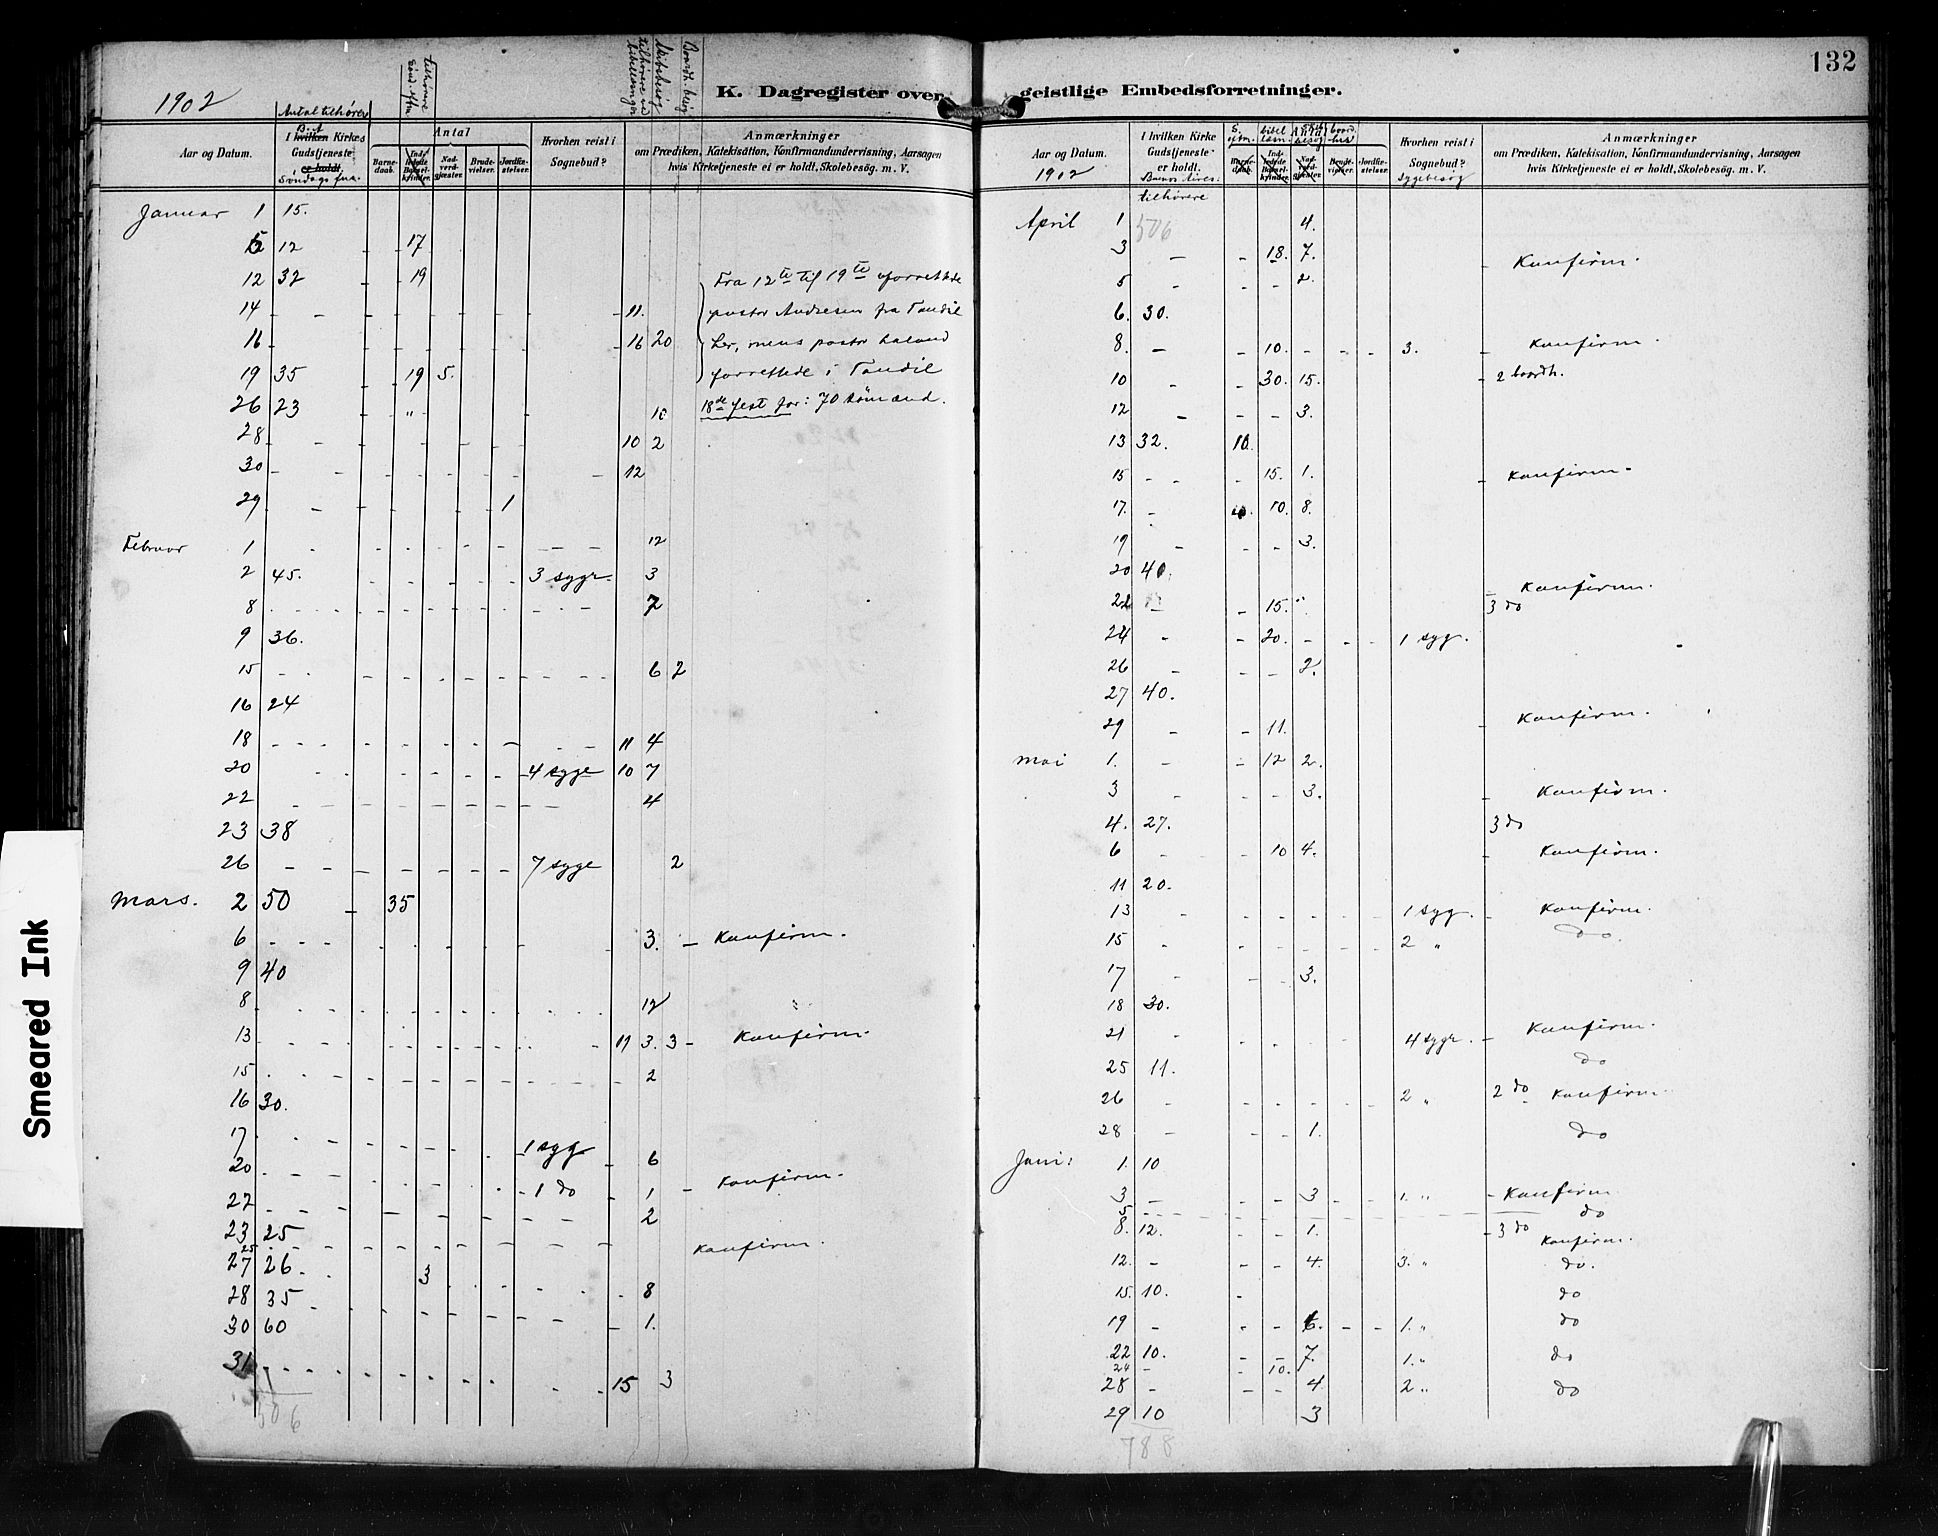 132
1902
K. Dagregister over geistlige Embedsforretninger.
tilhørere
Sönd. eftm.
tilhørere ved
bibellæsninger
Skibsbesög
Boardh. besög
Antal tilhörere
B. A
Aar og Datum.
I hvilken Kirkes Gudstjeneste er holdt.
Söndags fm.
Antal
Barnedaab.
Indledede Barselkvinder.
Nadverdgjæster.
Brudevielser.
Jordfæstelser.
Hvorhen reist i Sognebud?
Anmærkninger
om Prædiken, Katekisation, Konfirmandundervisning, Aarsagen
hvis Kirketjeneste ei er holdt, Skolebesøg. m. V.
Januar 1 15.
5 12 - - 17
12 32 - - 19 Fra 12te til 19te forrettede
14 - - 11. pastor Andresen fra Tandil
16 - - 16 20 her, mens pastor
19 35 - - 19 5. forrettede i Tandil
26 23 - " 10 18de fest for: 70 sömænd.
28 - - 10 2
30 - - 12
29 - - 1
Februar 1 - - 12
2 45. - - 3 syge. 3
8 - - 7
9 36.
15 - - 6 2
16 24
18 - - 11 4
20 - - 4 syge 10 7
22 - - 4
23 38
26 - - 7 syge 2
Mars. 2 50 - 35
6 - - 3. - Konfirm.
9 40
8 - - 12
13 - - 11 3. 3 - Konfirm.
15 - - 2
16 30.
17 - - 1 syg 6
20 - - 1 do 1 - Konfirm.
22 - - 2
23 25
25 - - Konfirm.
27 26 - - 3 8
28 35 - -
30 60 - 1.
31 - - 15 3
506
Aar og Datum.
1902
I hvilken Kirke Gudstjeneste er holdt.
Buenos Aires:
tilhörere
Antal
S. eftm.
bibel læsn.
skibsbesög
boardhus
Barnedaab.
Indledede Barselkvinder.
Nadverdgjæster.
Brudevielser.
Jordfæstelser.
Hvorhen reist i Sognebud?
Sygebesög
Anmærkninger
om Prædiken, Katekisation, Konfirmandundervisning, Aarsagen
hvis Kirketjeneste ei er holdt, Skolebesøg. m. V.
April 1 506 4.
3 - - 18. 7. - Konfirm.
5 - - - 2.
6. 30.
8. - - 10. - - - 3. - Konfirm.
10 - - 30. 15. - 2 boardh.
12 - - - 3.
13 32. 10.
15 - - 15. 1. - Konfirm.
17. - 10. 8.
19 - - - 3.
20 40.
22 - - 15. " - Konfirm.
3 do
24 - - 20. - - - 1 syg.
26 - - - 2.
27 40.
29 - - 11. - Konfirm.
Mai 1. - - 12 2.
3 - - - 3. - Konfirm.
4. 27. 3 do
6 - - 10 4. - Konfirm.
11 20.
13 - - - - - - 1 syg. - Konfirm.
15 - - - - - - 2 " do.
17 - - - 3.
18 30.
21 - - - - - - 4 syge. - Konfirm.
25 11. do
26 - - - - - - 2 " 2 do - Konfirm.
28 - - - 1. do
Juni: 1. 10
3 - - - 3 - - 1. " - Konfirm
5 - - - do
8. 12. - - 1. - 3 do Konfirm.
12. - - - 4. 3. " do.
15. 10. - do
19 - - - 6. - - 1. " do
22 10. - - 7. 1. " do
24 - 10.
28 - - - 4 2 " do
29 10 3
788
Smeared Ink